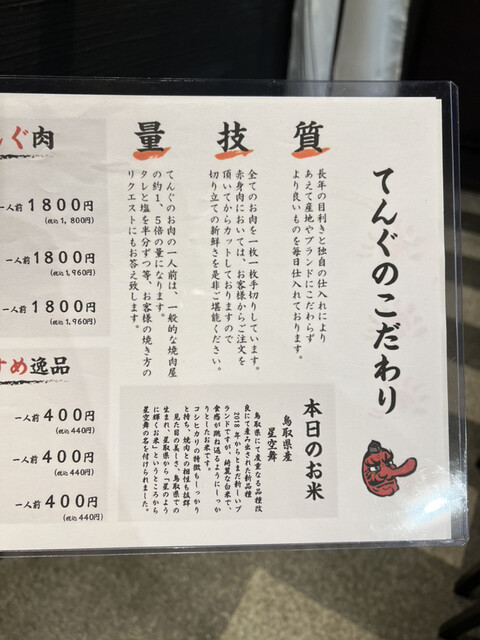 てんぐのこだわり
質
長年の目利きと独自の仕入れにより
あえて産地やブランドにこだわらず
より良いものを毎日仕入れております。
技
全てのお肉を一枚一枚手切りしています。
赤身肉においては、お客様からご注文を
頂いてからカットしておりますので
切り立ての新鮮さを是非ご堪能ください。
量
てんぐのお肉の一人前は、一般的な焼肉屋
の約1、5倍の量になります。
タレと塩を半分ずつ等、お客様の焼き方の
リクエストにもお答え致します。
本日のお米
鳥取県産
星空舞
鳥取県にて度重なる品種改
良にて産み出された新品種
2018年からとまだ新しいブ
ランドですが、綺麗な白米で、
食感が跳ね返るようにしっか
りとしたお米です。
コシヒカリの特徴もしっかり
と持ち、焼肉との相性も抜群
見た目の美しさ、鳥取県での
生まれ、星取県から「星のよう
に輝くお米」というところから
星空舞の名を付けられました。
ぐ肉
一人前1800円
(税込1,800円)
一人前1800円
(税込1,960円)
一人前1800円
(税込1,960円)
すめ逸品
一人前400円
(税込440円)
一人前400円
(税込440円)
一人前400円
(税込440円)